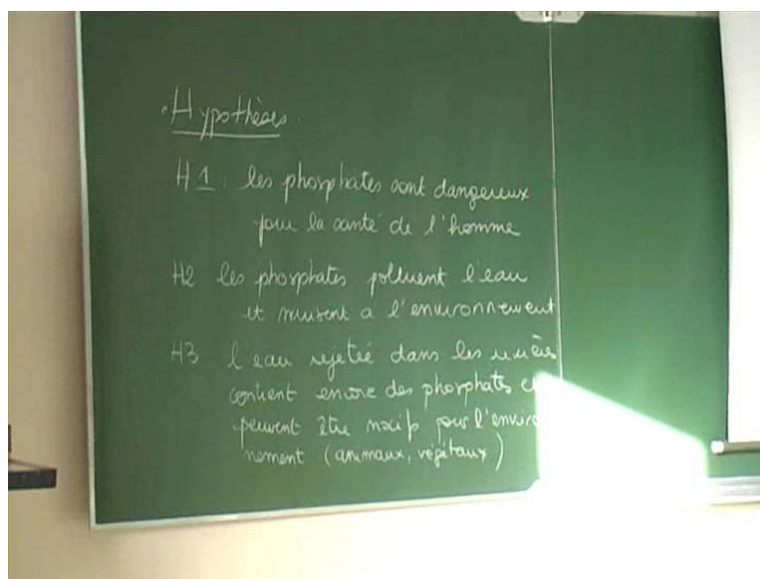 Hypothèses
H1 les phosphates sont dangereux
pour la santé de l'homme
H2 les phosphates polluent l'eau
et nuisent a l'environnement
H3 l'eau rejetée dans les
contient encore des phosphates
peuvent être nocifs pour l'enviro
nement (animaux, végétaux)